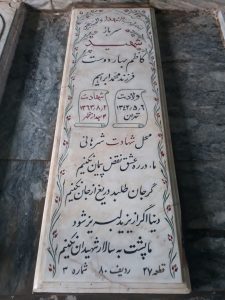 سرباز
شهید
کاظم بهاردوست
فرزند محمد ابراهیم
ولادت
۱۳۴۲,۵,۶
تهران
شهادت
۱۳۶۳,۸,۲
محل شهادت شرهانی
ما، در ره عشق نقض پیمان نکنیم
گر جان طلبد دریغ از جان نکنیم
دنیا اگر از یزید لبریز شود
ما پشت به سالار شهیدان نکنیم
قطعه ۲۷ ردیف ۸۰ شماره ۳